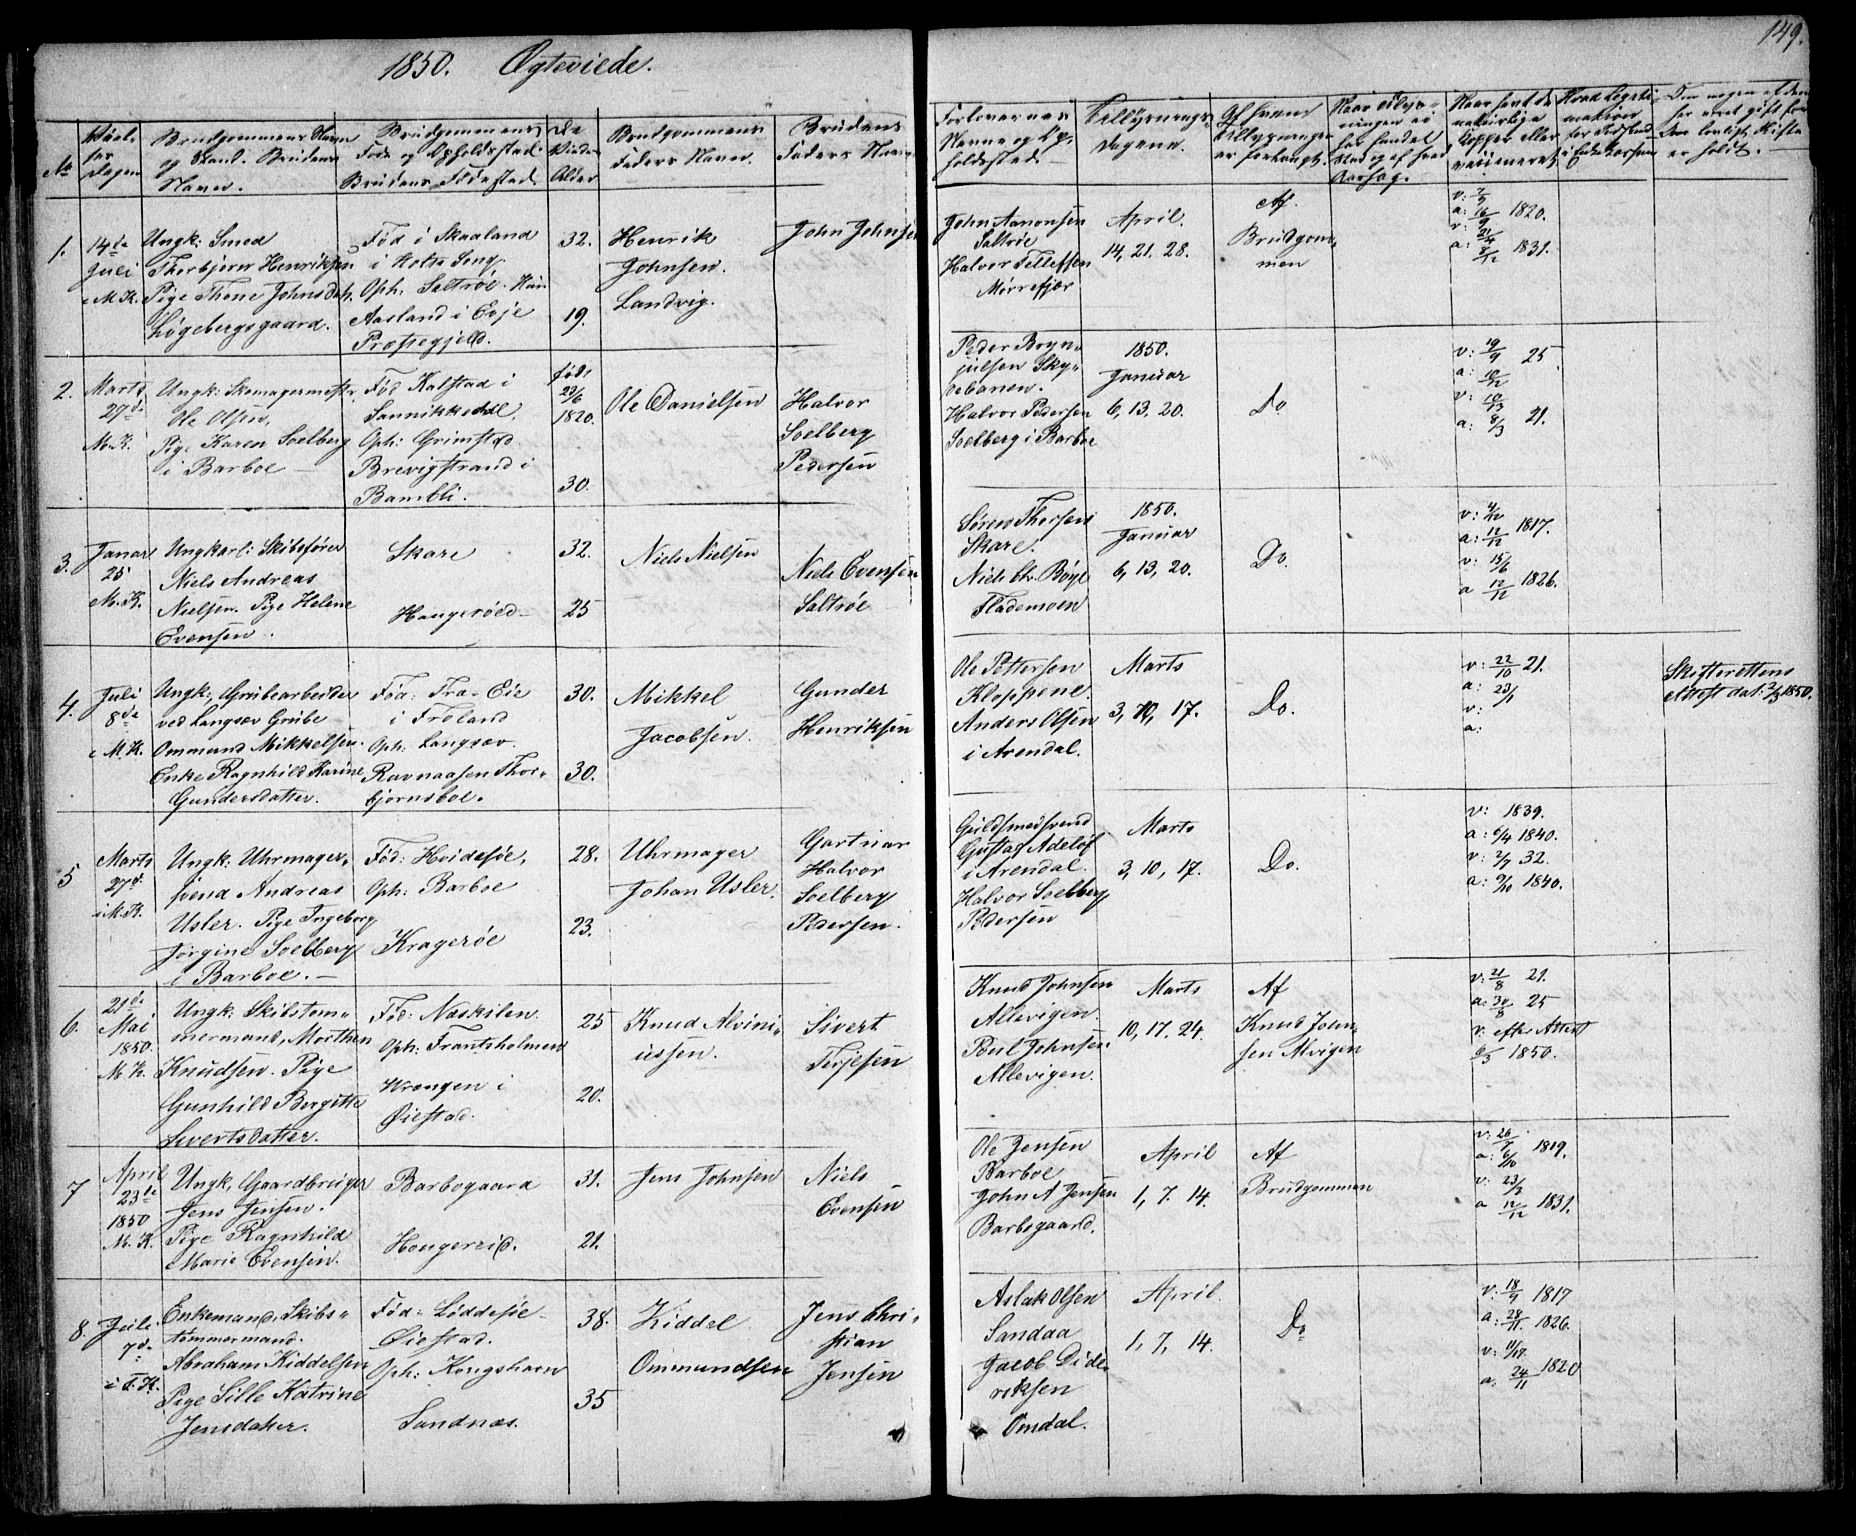 1850. Ægteviede.
149.
No
Vielses Dagen
Brudgommens Navn og Stand. Brudens Navn.
Brudgommens Føde og Opholdsstad. Brudens Fødestad
De Viedes Alder
Brudgommens Faders Navn.
Brudens Faders Navn
Forlovernes Navne og Opholdssted
Tillysnings Dagene.
Af hvem Tillysningen er forlangt.
1.
14de
Juli
i M.K.
Ungk: Smed
Thorbjørn Henriksen
Pige Thone Johnsdat,
Løgebergsgaard.
Fød i Skaaland
i Holts Sogn
Oph: Saltrøe. Hun
Aasland i Evje
Præstegjeld.
32.
19.
Henrik
Johnsen.
Landvig.
John Johnsen
John Aanonsen
Saltrøe
Halvor Tellefsen
Mørrefjær
April.
14, 21. 28.
Af
Brudgom-
men
v: 7/5
a: 16/9 1820.
v: 21/4
a: 3/12 1831.
2.
Marts
27de
M.K.
Ungk: Skomagermester
Ole Olsen,
Pige Karen Soelberg
i Barboe
Fød Kalstad i
Sannikkedal.
Oph: Grimstad.
Brevigstrand i
Bambli.
født
23/6
1820.
30.
Ole Danielsen
Halvor
Soelberg
Pedersen
Peder Bryn-
julsen Sky-
debanen.
Halvor Pedersen
Soelberg i Barboe
1850.
Januar
6, 13, 20.
Do
v: 19/9 25
a: 10/12
v: 10/13
a: 8/3 21.
3.
Januar
25
M.K.
Ungkarl: Skibsfører
Niels Andreas
Nielsen. Pige Helene
Evensen.
Skare
Haugerøed
32.
25
Niels Nielsen
Niels Evensen
Saltrøe
Søren Thorsen
Skare.
Niels Chr. Bøye
Flademoen
1850.
Januar
6, 13, 20.
Do.
v: 4/10
a: 12/12 1817.
v: 15/6
a 12/12 1826.
4.
Juli
8de
i M.K.
Ungk, Grubearbeider
ved Langsæv Grube
Ommund Mikkelsen.
Enke Ragnhild Karine
Gundersdatter.
Fød: Fra-Eie
i Froland
Oph: Langsæv.
Ravnaasen Thor-
bjørnsboe.
30.
30.
Mikkel
Jacobsen.
Gunder
Henriksen
Ole Pettersen
Kloppene.
Anders Olsen
i Arendal.
Marts
3, 10, 17.
Do.
v: 22/10 21.
a: 23/1
v:
a:
Skifterettens
Attest dat: 2/3 1850.
5
Marts
27d.
i M.K.
Ungk: Uhrmager-
svend Andreas
Usler. Pige Ingeborg
Jørgine Soelberg
i Barboe.
Fød: Hvidesøe,
Oph: Barboe
Kragerøe
28.
23.
Uhrmager
Johan Usler.
Gartner
Halvor
Soelberg
Pedersen.
Guldsmedsvend
Gustaf Adelöf
i Arendal.
Halvor Soelberg
Pedersen
Marts
3, 10, 17.
Do.
v: 1839.
a: 6/4 1840.
v: 2/7 32.
a: 9/10 1840.
6.
21de
Mai
1850.
M.K.
Ungk: Skibstøm-
mermand, Morthen
Knudsen. Pige
Gunhild Bergitte
Sivertsdatter.
Fød: Næskilen.
Oph: Frantsholmen
Wrængen i
Øiestad.
25
20.
Knud Alvini-
ussen.
Sivert
Terjesen
Knud Johnsen
Allevigen.
Poul Johnsen.
Allevigen.
Marts
10, 17. 24.
Af
Knud John-
sen Alvigen
v: 21/8 21.
a: 30/8 25
v: efter Attest
6/3 1850.
7
April
23de
1850
M.K.
Ungk, Gaardbruger
Jens Jensen.
Pige Ragnhild
Marie Evensen.
Barbogaard
Haugerød.
31.
21.
Jens Johnsen
Niels
Evensen
Ole Jensen
Barboe
John A Jensen
Barbogaard.
April
1, 7. 14.
Af
Brudgommen
v: 26/7
a: 6/10 1819.
v: 23/3
a 12/12 1831.
8.
Juli.
7de
i T.K.
Enkemand, Skibs-
tømmermand.
Abraham Kiddelsen
Pige Sille Katrine
Jensdatter.
Fød: Løddesøe-
Øiestad.
Oph: Kongshavn
Sandnæs.
38.
35
Kiddel
Ommundsen
Jens Chri-
stian
Jensen
Aslak Olsen
Sandaa
Jacob Dide-
riksen
Omdal.
April.
1, 7, 14.
Do
v: 18/9 1817
a: 28/11. 1826.
v: 11/17.
a: 24/11 1820